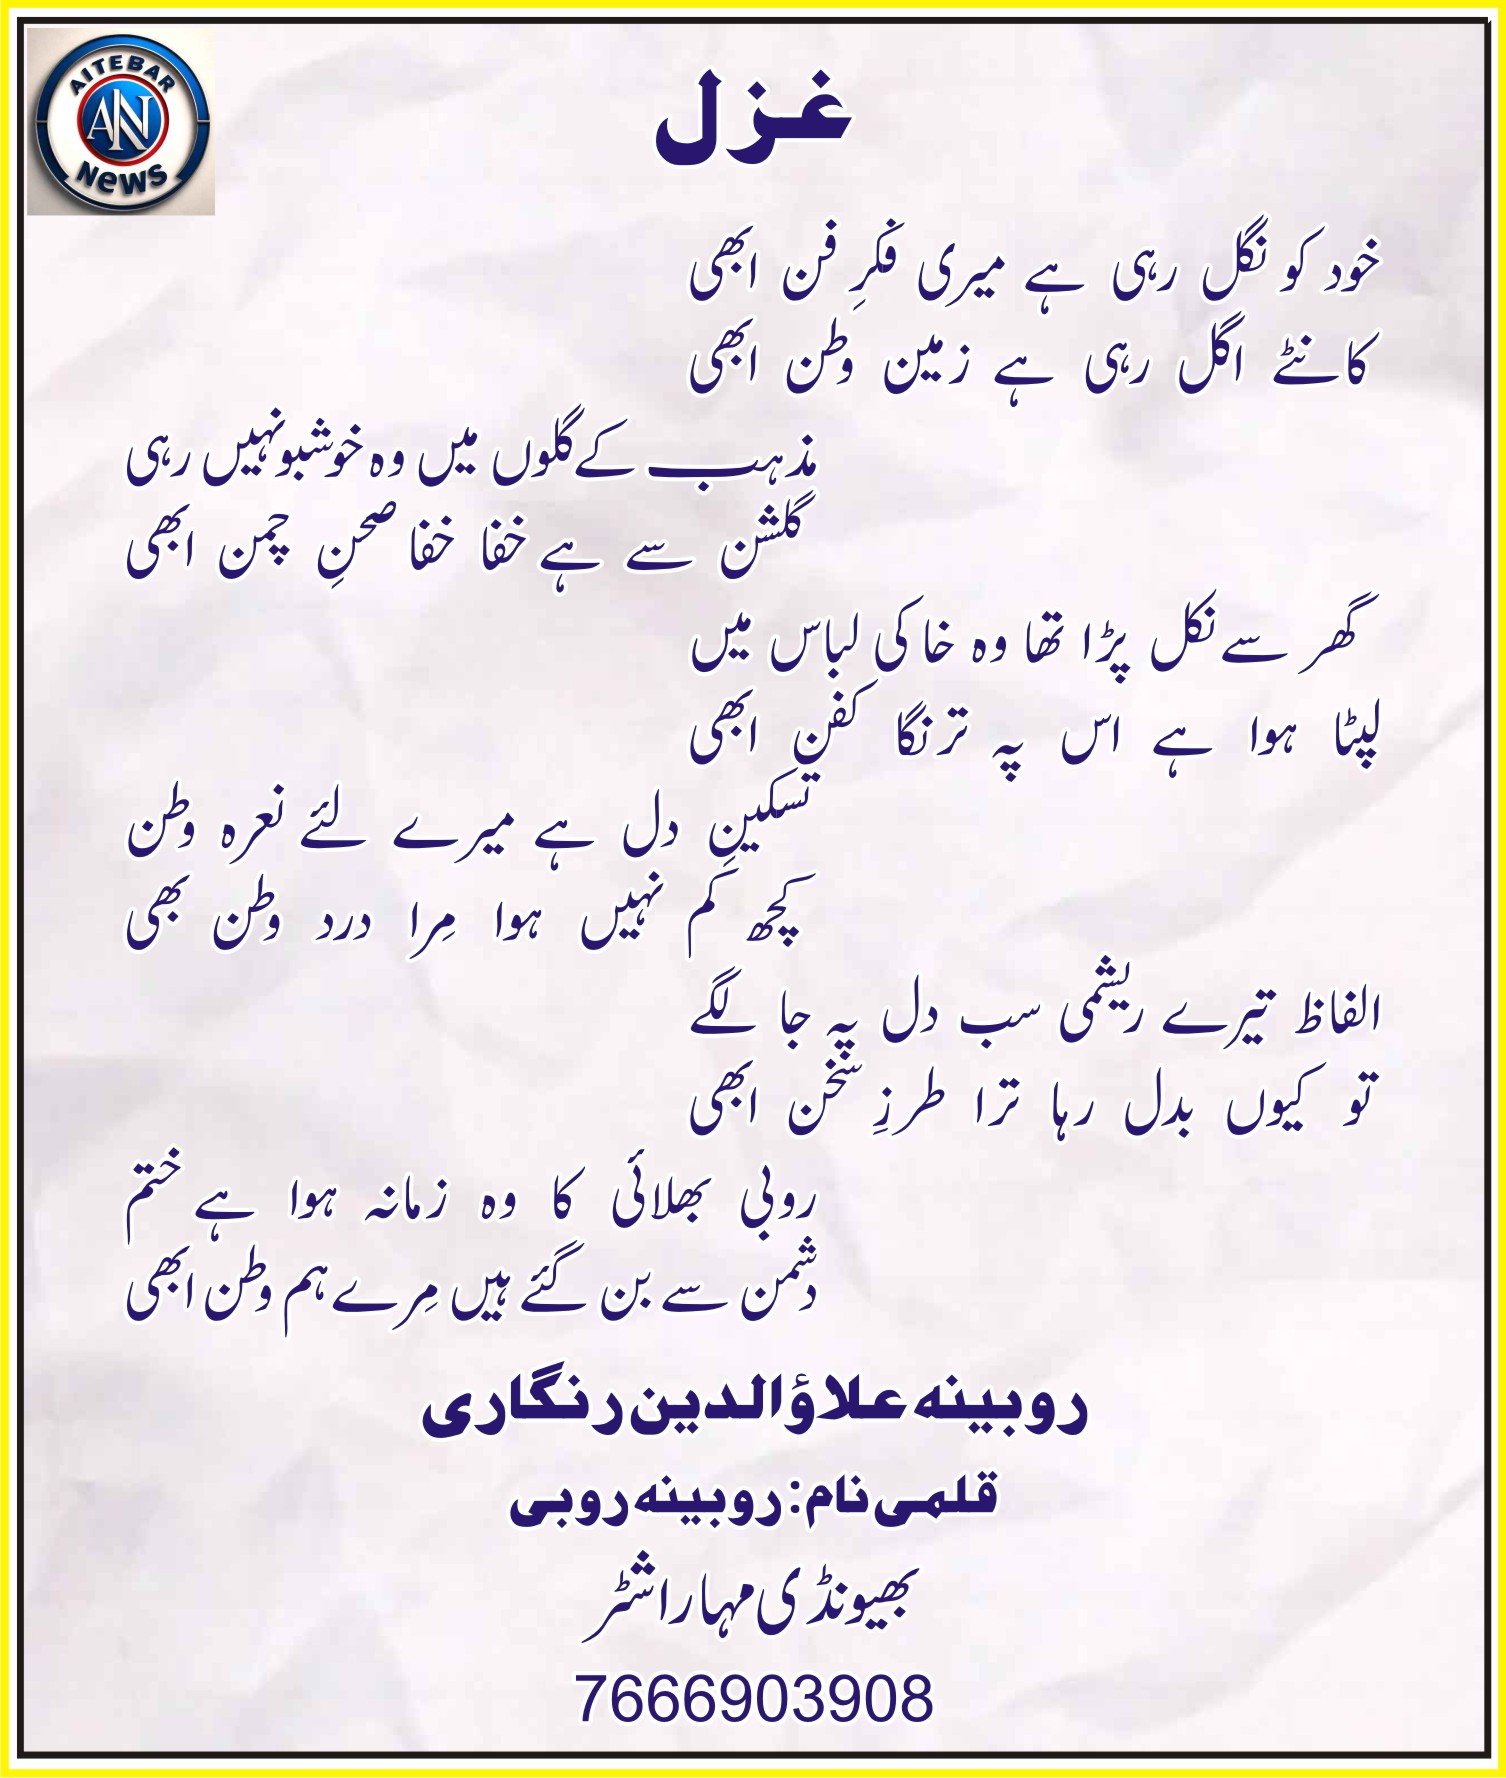 AITEBAR
AN
News
غزل
خود کو نگل رہی ہے میری فکرِ فن ابھی
کانٹے اگل رہی ہے زمین وطن ابھی
مذہب کے گلوں میں وہ خوشبو نہیں رہی
گلشن سے ہے خفا خفا صحنِ چمن ابھی
گھر سے نکل پڑا تھا وہ خاکی لباس میں
لپٹا ہوا ہے اس پہ ترنگا کفن ابھی
تسکینِ دل ہے میرے لئے نعرہ وطن
کچھ کم نہیں ہوا مِرا درد وطن بھی
الفاظ تیرے ریشمی سب دل پہ جا لگے
تو کیوں بدل رہا ترا طرزِ سخن ابھی
روبی بھلائی کا وہ زمانہ ہوا ہے ختم
دشمن سے بن گئے ہیں مِرے ہم وطن ابھی
روبینہ علاؤالدین رنگاری
قلمی نام: روبینہ روبی
بھیونڈی مہاراشٹر
7666903908